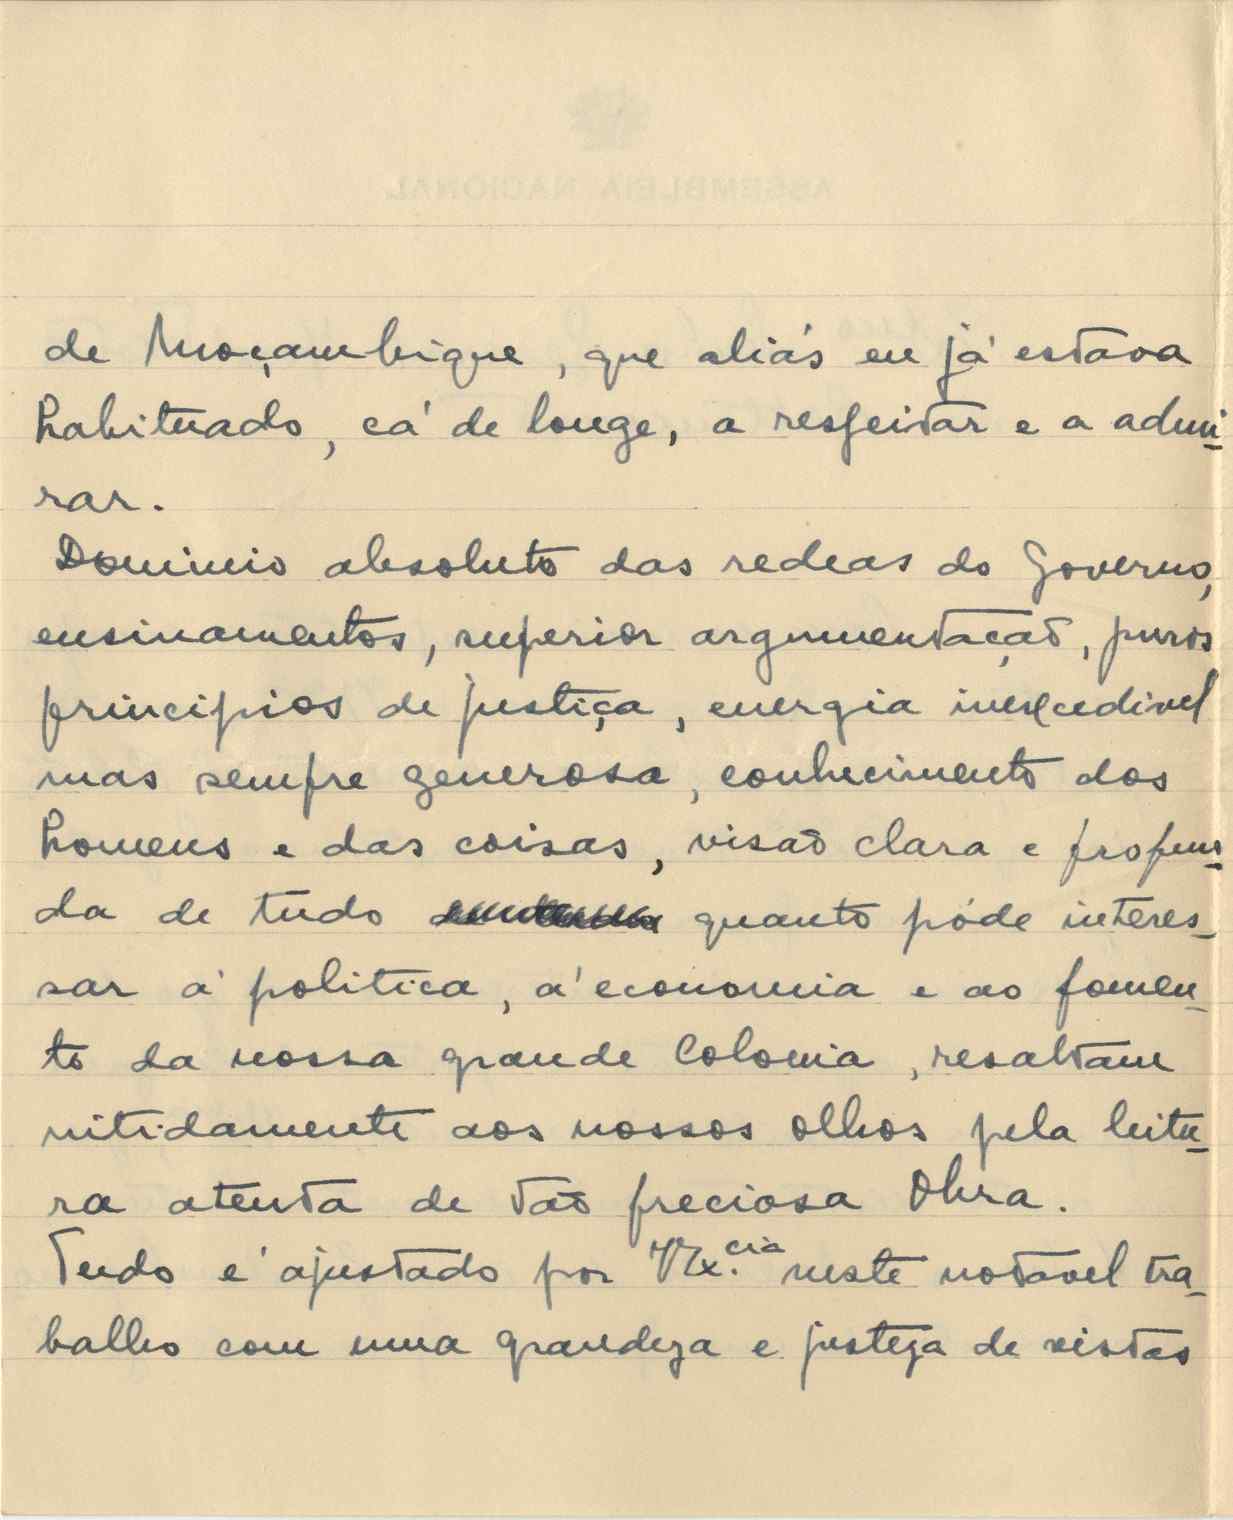 ASSEMBLEIA NACIONAL
de Moçambique, que aliás eu já estava
habituado, cá de longe, a respeitar e a admi-
rar.
Dominio absoluto das redeas do Governo,
ensinamentos, superior argumentação, puros
principios de justiça, energia inexcedivel
mas sempre generosa, conhecimento dos
homens e das coisas, visão clara e profun-
da de tudo quanto póde interes-
sar á politica, á economia e ao fomen-
to da nossa grande Colonia, resaltam
nitidamente aos nossos olhos pela leitu-
ra atenta de tão preciosa Obra.
Tudo é ajustado por VEx.cia neste notavel tra-
balho com uma grandeza e justeza de vistas